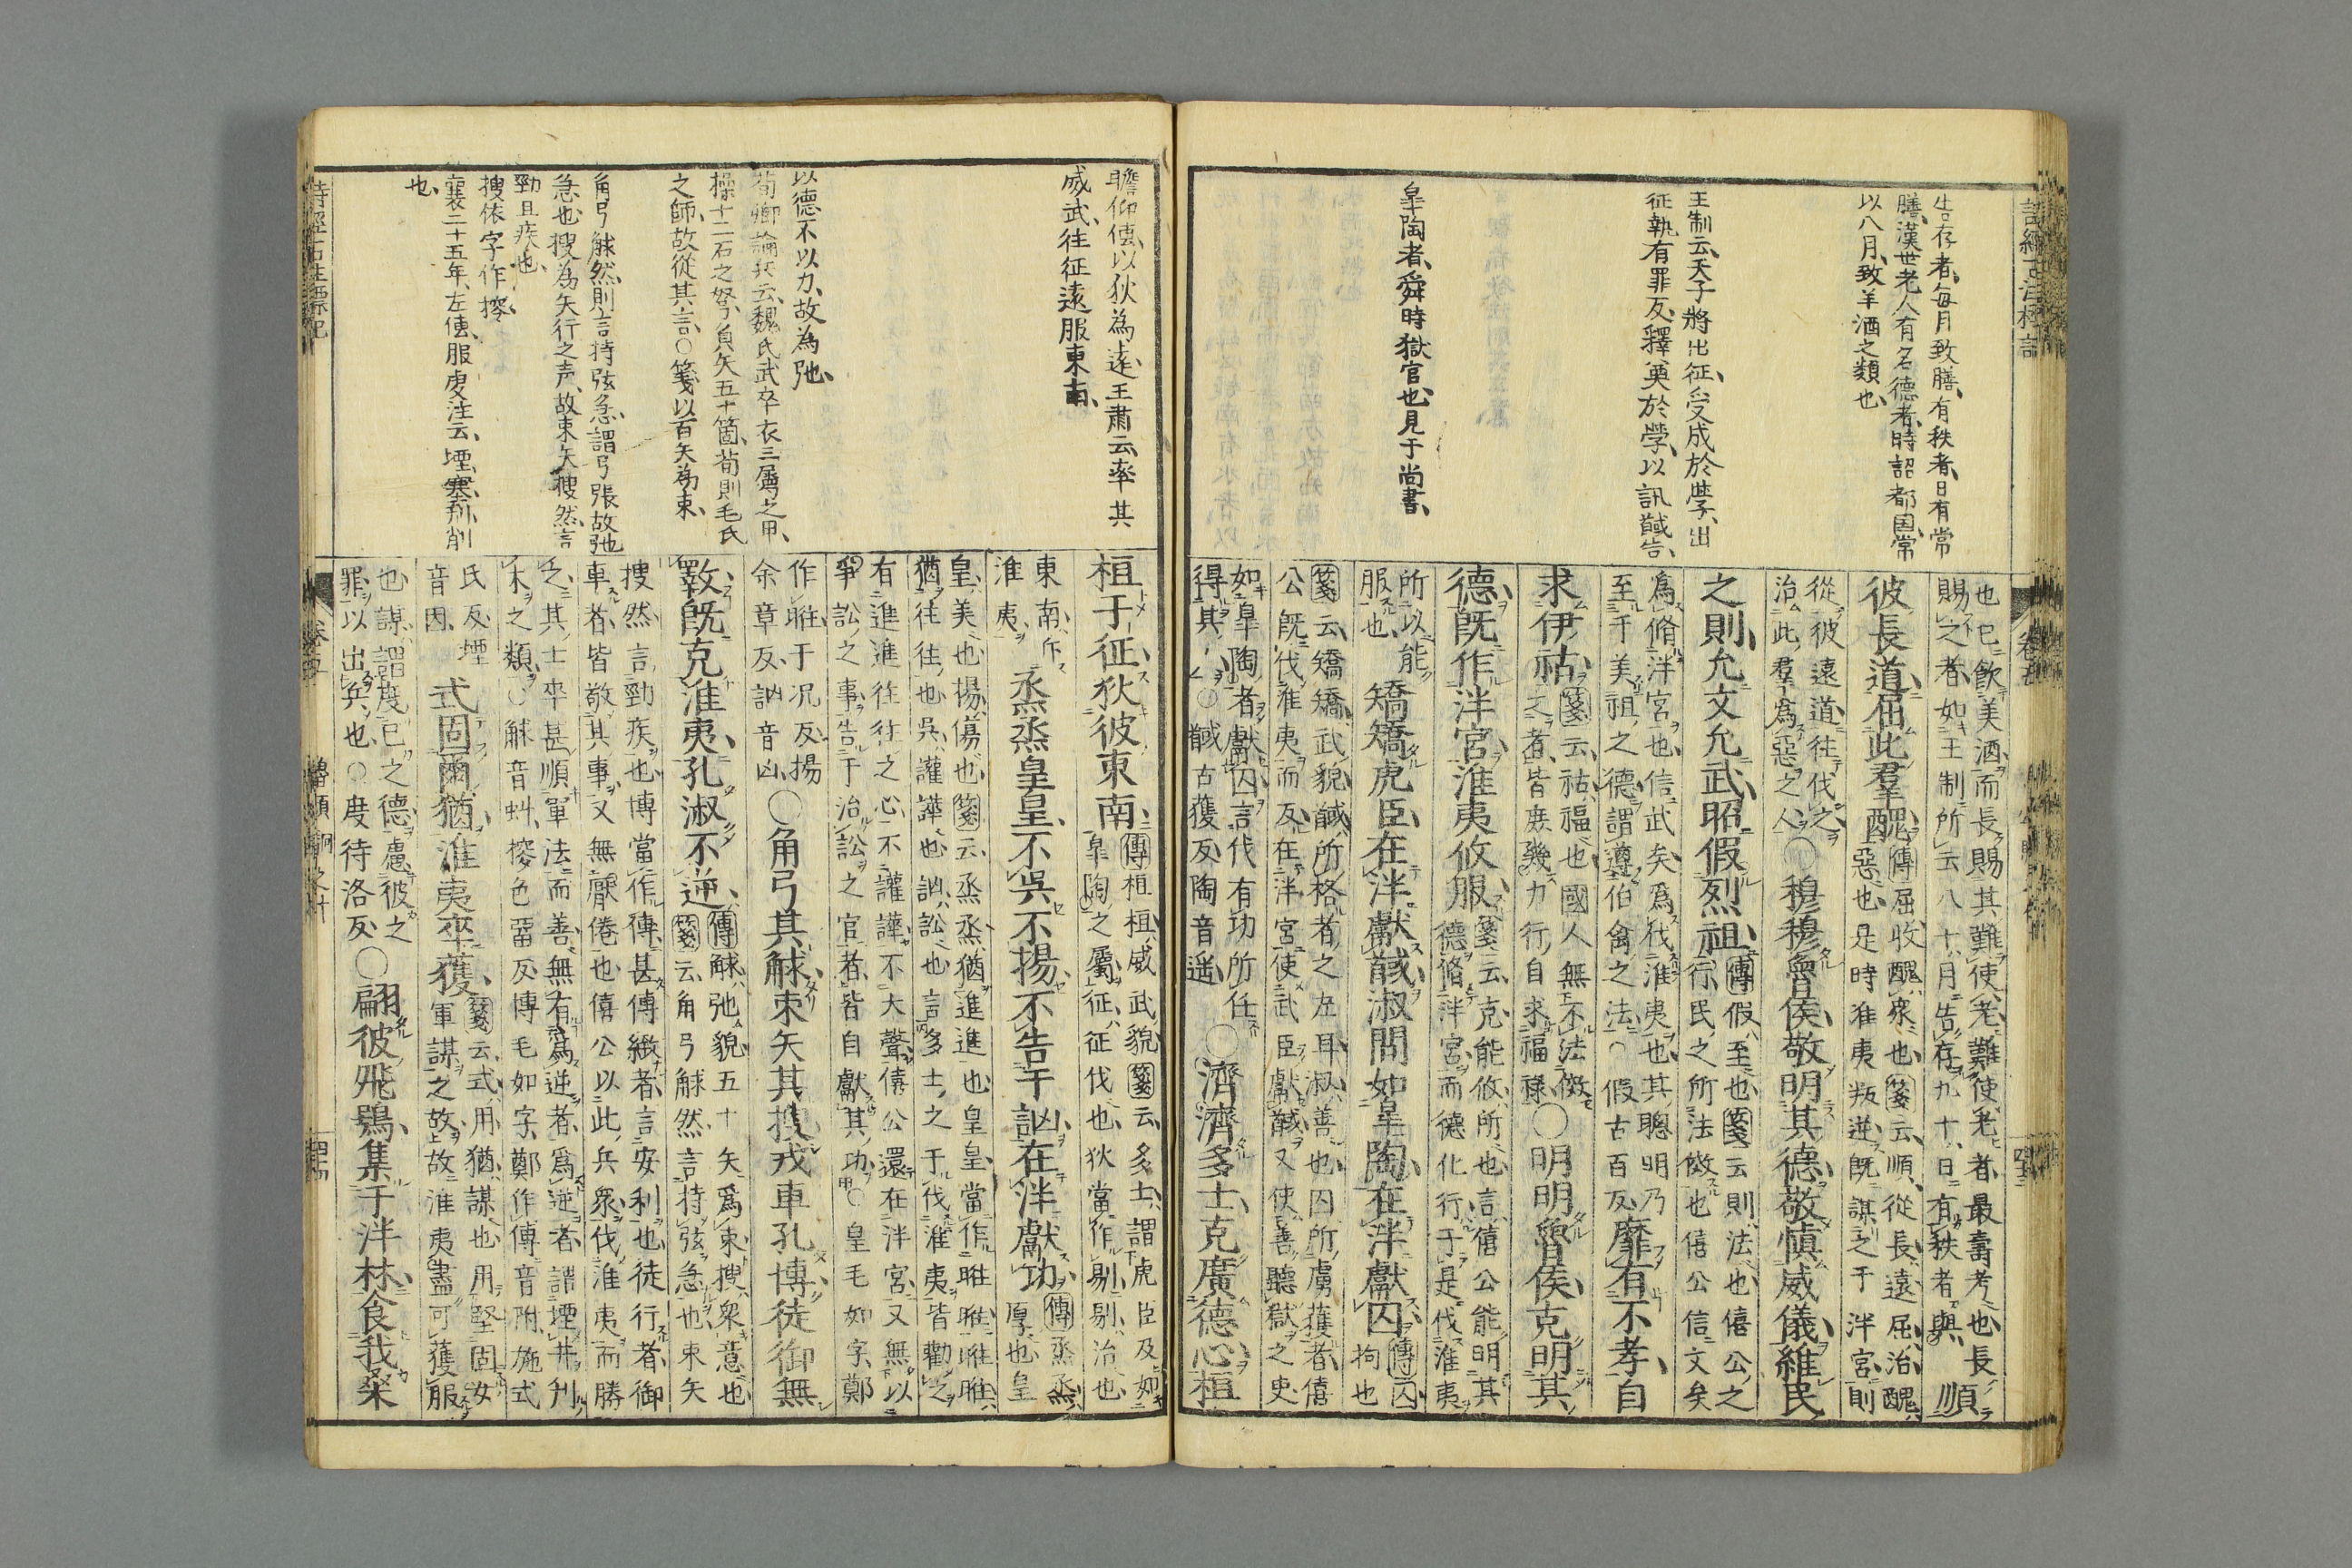 詩經古注標記
告存者、每月致膳、有秩者、日有常
膳、漢世老人有名德者、時詔都国、常
以八月、致羊酒之類也、
王制云、天子將出征、受成於學、出
征執有罪反、釋奠於學、以訊馘告、
皐陶者、舜時獄官也、見于尚書、
也已飲美酒而長賜其難使老難使老者最壽考也長
賜之者如王制所云八十月告存九十日有秩者與 順
彼長道屈此羣醜
傳屈收醜衆也箋云順從長遠屈治醜
惡也是時淮夷叛逆既謀之于泮宮則
從彼遠道往伐之
治此羣爲惡之人
○穆穆魯侯敬明其德敬愼威儀維民
之則允文允武昭假烈祖
傳假至也箋云則法也僖公之
行民之所法傚也僖公信文矣
爲脩泮宮也信武矣爲伐淮夷也其聰明乃
至于美祖之德謂遵伯禽之法○假古百反
靡有不孝自
求伊祜
箋云祜福也國人無不法傚
之者皆庶幾力行自求福祿
○明明魯侯克明其
德既作泮宮淮夷攸服
箋云克能攸所也言僖公能明其
德脩泮宮而德化行于是伐淮夷
所以能
服也
矯矯虎臣在泮獻馘淑問如皐陶在泮獻囚
傳囚
拘也
箋云矯矯武貌馘所格者之左耳淑善也囚所虜獲者僖
公既伐淮夷而反在泮宮使武臣獻馘又使善聽獄之吏
如皐陶者獻囚言伐有功所任
得其人○馘古獲反陶音遥
○濟濟多士克廣德心桓
卷
四十三
瞻仰傳、以狄為遠、王肅云、率其
威武、往征遠服東南、
以德不以力、故為弛、
荀卿論兵云、魏氏武卒衣三屬之甲、
操十二石之弩、負矢五十箇、荀則毛氏
之師、故從其言、○箋、以百矢為束、
角弓觩然、則言持弦急、謂弓張故弛
急也、搜為矢行之声、故束矢搜然、言
勁且疾也、
搜依字作㮟、
襄二十五年、左傳、服虔注云、堙、塞、刋、削
也、
桓于征狄彼東南
傳桓桓威武貌箋云多士謂虎臣及如
皐陶之屬征征伐也狄當作剔剔治也
東南斥
淮夷
烝烝皇皇不吳不揚不告于訩在泮獻功
傳烝烝
厚也皇
皇美也揚傷也箋云烝烝猶進進也皇皇當作暀暀暀暀
猶往往也吳讙譁也訩訟也言多士之于伐淮夷皆勸之
有進進往往之心不讙譁不大聲僖公還在泮宮又無以
爭訟之事告于治訟之官者皆自獻其功○皇毛如字鄭
作暀于况反揚
余章反訩音凶
○角弓其觩束矢其搜戎車孔博徒御無
斁既克淮夷孔淑不逆
傳觩弛貌五十矢爲束搜衆意也
箋云角弓觩然言持弦急也束矢
搜然言勁疾也博當作傅甚傅緻者言安利也徒行者御
車者皆敬其事又無厭倦也僖公以此兵衆伐淮夷而勝
之其士卒甚順軍法而善無有爲逆者爲逆者謂堙井刋
木之類○觩音虯㮟色留反博毛如字鄭作傅音附施式
氏反堙
音因
式固爾猶淮夷卒獲
箋云式用猶謀也用堅固女
軍謀之故故淮夷盡可獲服
也謀謂度已之德慮彼之
罪以出兵也○度待洛反
○翩彼飛鴞集于泮林食我桑
詩經古注標記
卷
魯頌駉之什
四十四